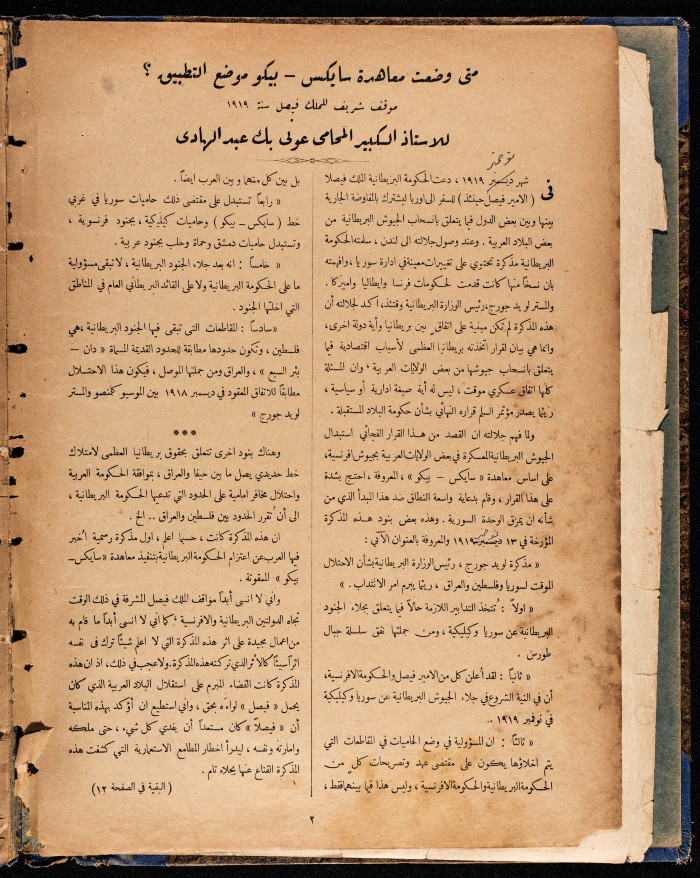 متى وضعت معاهدة سايكس – بيكو موضع التطبيق ؟
موقف شريف للملك فيصل سنة ١٩١٩
للاستاذ الكبير المحامى عونى بك عبد الهادى
فى شهر ديسمبر ١٩١٩ ، دعت الحكومة البريطانية الملك فيصلا
( الامير فيصل حينئذ ) للسفر الى اوربا ليشترك بالمفاوضة الجارية
بينها وبين بعض الدول فيما يتعلق بانسحاب الجيوش البريطانية من
بعض البلاد العربية . وعند وصول جلالته الى لندن ، سلمته الحكومة
البريطانية مذكرة تحتوي على تغييرات معينة في ادارة سوريا ، وافهمته
بان نسخاً منها كانت قدمت لحكومات فرنسا وايطاليا واميركا .
والمستر لويد جورج ، رئيس الوزارة البريطانية وقتئذ ، أكد لجلالته أن
هذه المذكرة لم تكن مبنية على اتفاق بين بريطانيا وأية دولة اخرى ،
وانما هي بيان لقرار اتخذته بريطانيا العظمى لأسباب اقتصادية فيما
يتعلق بانسحاب جيوشها من بعض الولايات العربية ، وان المسئلة
كلها اتفاق عسكري موقت ، ليس له أية صبغة ادارية أو سياسية ،
ريثما يصدر مؤتمر السلم قراره النهائي بشأن حكومة البلاد المستقبلة .
ولما فهم جلالته ان القصد من هذا القرار الفجائي استبدال
الجيوش البريطانية المعسكرة في بعض الولايات العربية بجيوش افرنسية ،
على اساس معاهدة « سايكس – بيكو » ، المعروفة ، احتج بشدة
على هذا القرار ، وقام بدعاية واسعة النطاق ضد هذا المبدأ الذي من
شأنه ان يمزق الوحدة السورية . وهذه بعض بنود هذه المذكرة
المؤرخة في ١٣ ديسمبر ١٩١٩ والمعروفة بالعنوان الآتي :
« مذكرة لويد جورج ، رئيس الوزارة البريطانية بشأن الاحتلال
الموقت لسوريا وفلسطين والعراق ، ريثما يبرم امر الانتداب . »
« اولاً : تتخذ التدابير اللازمة حالاً فيما يتعلق بجلاء الجنود
البريطانية عن سوريا وكيليكية ، ومن جملتها نفق سلسلة جبال
طورس .
« ثانياً : لقد أعلن كل من الامير فيصل والحكومة الافرنسية ،
أن في النية الشروع في جلاء الجيوش البريطانية عن سوريا وكيليكية
في نوفمبر ١٩١٩ .
« ثالثاً : ان المسؤولية في وضع الحاميات في المقاطعات التي
يتم اخلاؤها يكون على مقتضى عهد وتصريحات كل من
الحكومة البريطانية والحكومة الافرنسية ، وليس هذا فيما بينهما فقط ،
بل بين كل منهما وبين العرب ايضاً .
« رابعاً تستبدل على مقتضى ذلك حاميات سوريا في غربي
خط ( سايكس – بيكو ) وحاميات كيليكية ، بجنود فرنسوية ،
وتستبدل حاميات دمشق وحماة وحلب بجنود عربية .
« خامساً : انه بعد جلاء الجنود البريطانية ، لا تبقى مسؤولية
ما على الحكومة البريطانية ولا على القائد البريطاني العام في المناطق
التي اخلتها الجنود .
« سادساً : المقاطعات التى تبقى فيها الجنود البريطانية ، هي
فلسطين ، وتكون حدودها مطابقة للحدود القديمة المسماة « دان –
بئر السبع » ، والعراق ومن جملتها الموصل ، فيكون هذا الاحتلال
مطابقاً للاتفاق المعقود في ديسمبر ١٩١٨ بين الموسيو كلمنصو والمستر
لويد جورج »
***
وهناك بنود اخرى تتعلق بحقوق بريطانيا العظمى لامتلاك
خط حديدي يصل ما بين حيفا والعراق ، بموافقة الحكومة العربية
واحتلال مخافر امامية على الحدود التي تدعيها الحكومة البريطانية ،
الى أن تقرر الحدود بين فلسطين والعراق .. الخ .
ان هذه المذكرة كانت ، حسبما اعلم ، اول مذكرة رسمية أخبر
فيها العرب عن اعتزام الحكومة البريطانية بتنفيذ معاهدة « سايكس –
بيكو » الممقوتة .
وأني لا انسى أبداً مواقف الملك فيصل المشرفة في ذلك الوقت
تجاه الدولتين البريطانية والافرنسية ، كما أني لا انسى أبداً ما قام به
من اعمال مجيدة على اثر هذه المذكرة التي لا اعلم شيئاً ترك فى نفسه
اثراً سيئاً كالأثر الذي تركته هذه المذكرة . ولا عجب في ذلك ، اذ ان هذه
المذكرة كانت القضاء المبرم على استقلال البلاد العربية الذي كان
يحمل « فيصل » لواءه بحق ، وأني استطيع ان أؤكد بهذه المناسبة
أن « فيصلاً » كان مستعداً أن يفدي كل شيء ، حتى ملكه
وامارته ونفسه ، ليدرأ اخطار المطامع الاستعمارية التي كشفت هذه
المذكرة القناع عنها بجلاء تام .
( البقية في الصفحة ١٢ )
٢